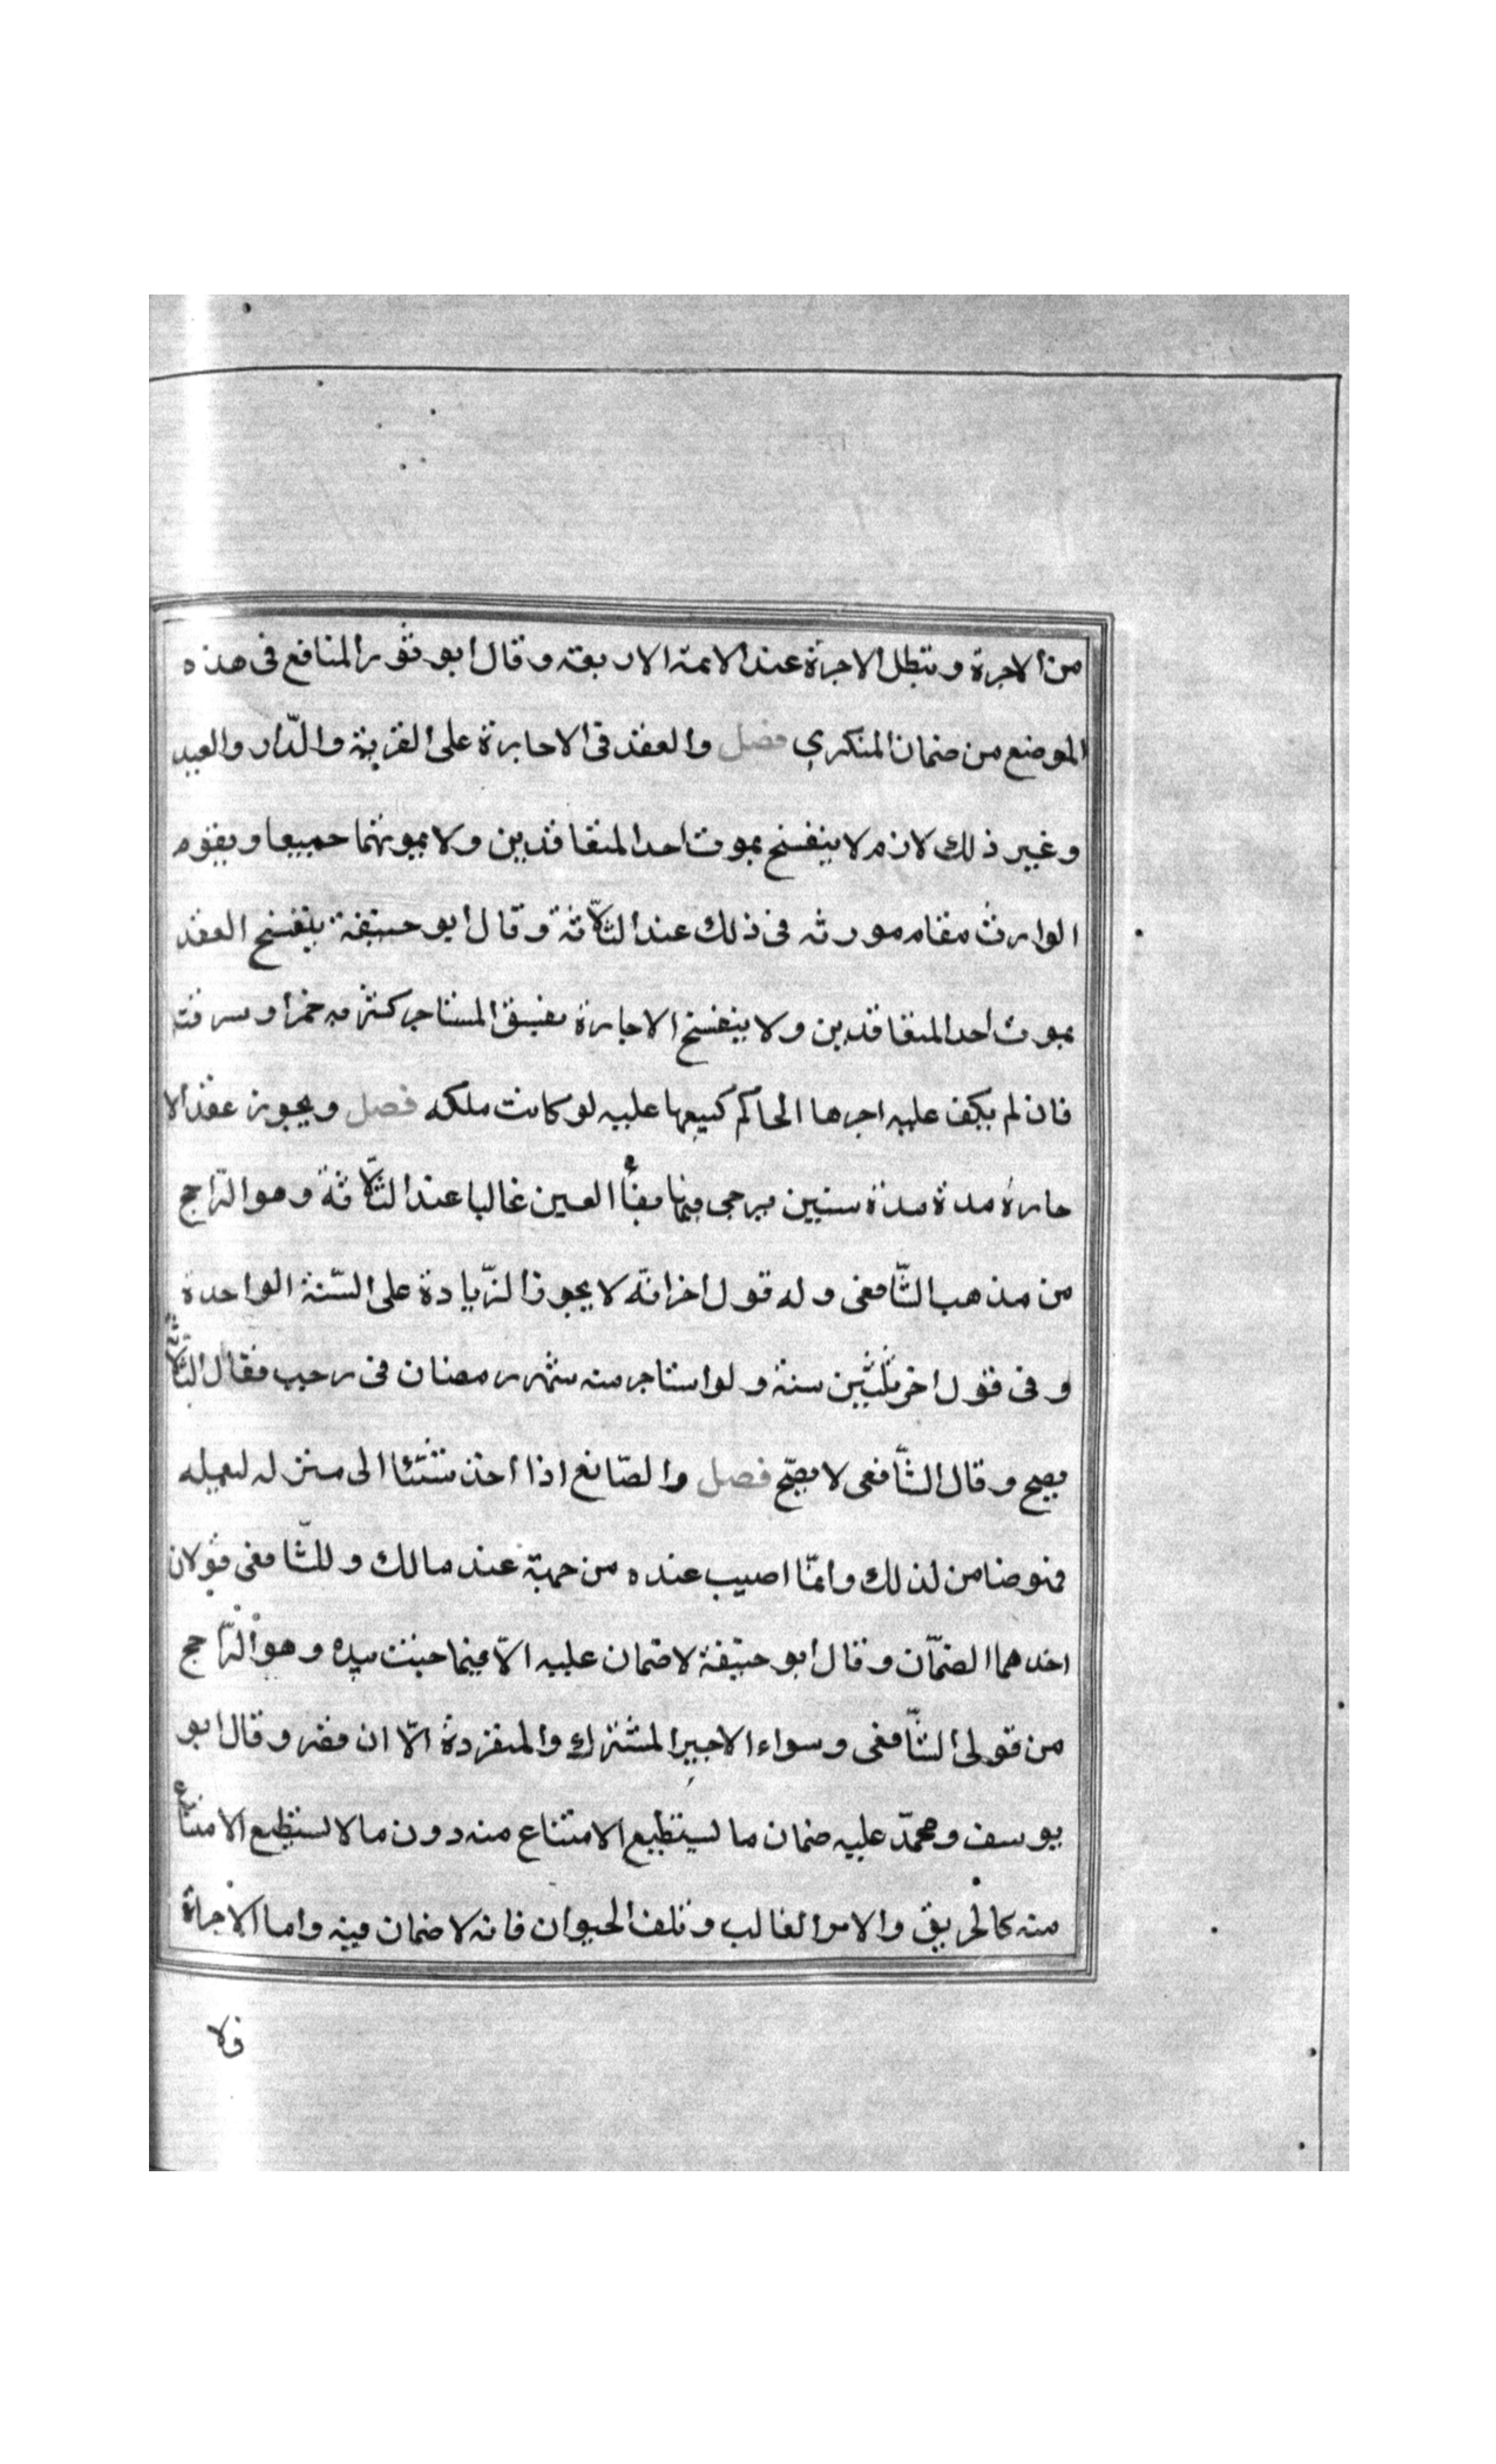 من الاجرة وتبطل الاجرة عند الائمة الاربعة وقال ابو ثور المنافع فى هذه
الموضع من ضمان المنكرى فصل والعقد فى الاجارة على القرية والدّار والعبد
وغير ذلك لازم لا ينفسخ بموت احد المتعاقدين ولا بموتهما جميعا ويقوم
الوارث مقام مورثه فى ذلك عند الثّلاثة وقال ابو حنيفة ينفسخ العقد
بموت احد المتعاقدين ولا ينفسخ الاجارة بفسق المستاجر كشربه خمرا وسرقته
فان لم يكف عليه اجرها الحاكم كبيعها عليه لو كانت ملكه فصل ويجوز عقد الا
جارة مدة مدة سنين يرجى فيها بقأ العين غالبا عند الثّلاثة وهو الرّاجح
من مذهب الشّافعى وله قول اخر انّه لا يجوز الزّيادة على السّنة الواحدة
وفى قول اخر ثلثين سنة ولو استاجر منه شهر رمضان فى رجب فقال الثّلاثة
يصح وقال الشّافعى لا يصّح فصل والصّانع اذا اخذ شيئا الى منزله ليعمله
فهو ضامن لذلك وامّا اصيب عنده من جهة عند مالك وللشّافعى قولان
احدهما الضّمان وقال ابو حنيفة لا ضمان عليه الاّ فيما جنت يده وهو الرّاجح
من قولى الشّافعى وسواء الاجير المشترك والمنفردة الّا ان قصر وقال ابو
يوسف ومحمّد عليه ضمان ما يستطيع الامتناع منه دون ما لا يستطيع الامتناع
منه كالحريق والامر الغالب وتلف الحيوان فانه لا ضمان فيه واما الاجراة
فلا